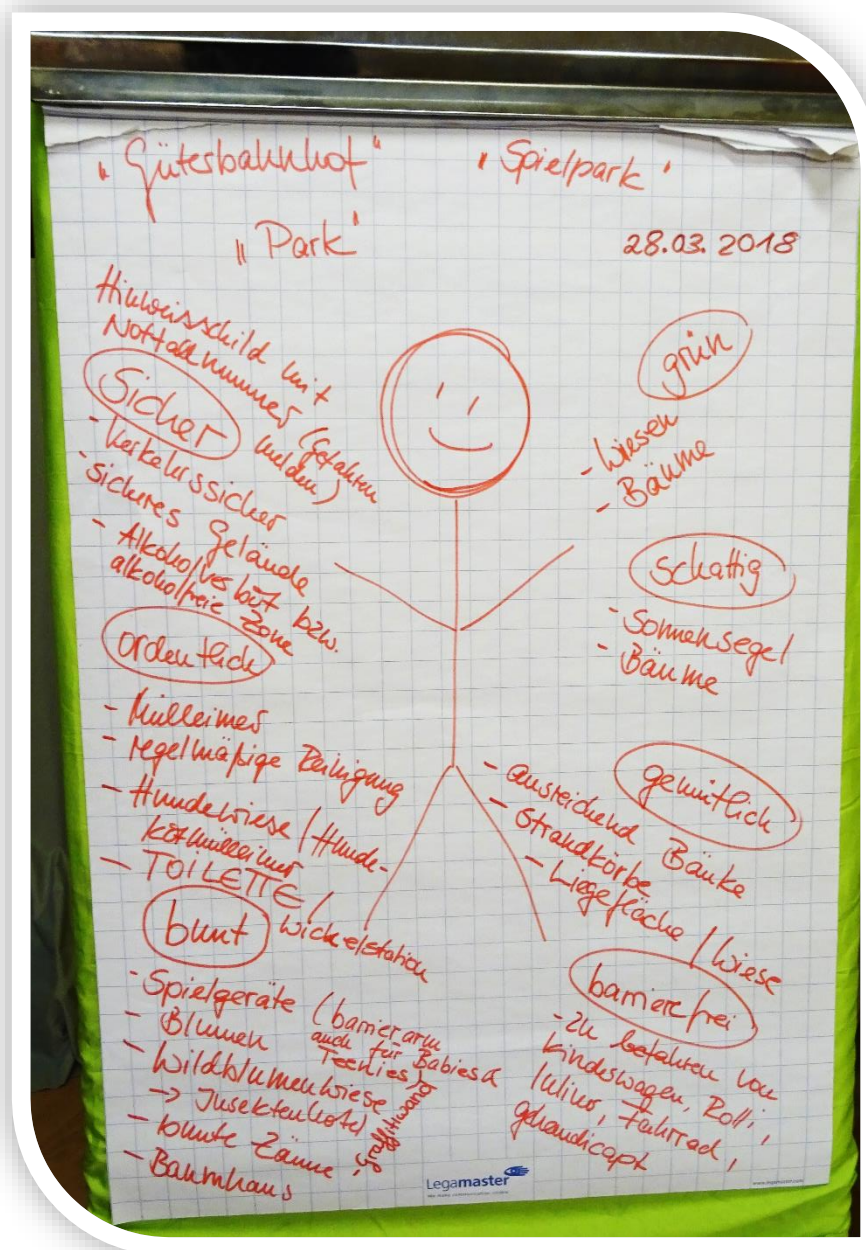 "Güterbahnhof"
"Spielpark"
"Park"
28.03.2018
Hinweisschild mit
Notfallnummer (Gefahren
melden)
Sicher
- Verkehrssicher
- sicheres Gelände
- Alkoholverbot bzw.
alkoholfreie Zone
ordentlich
- Mülleimer
- regelmäßige Reinigung
- Hundewiese / Hunde-
kotmülleimer
- TOILETTE /
Wickelstation
bunt
- Spielgeräte (barrierarm
auch für Babies &
Teenies)
- Blumen
- Wildblumenwiese
→ Insektenhotel
- bunte Zäune
- Graffitiwand
- Baumhaus
grün
- Wiesen
- Bäume
schattig
- Sonnensegel
- Bäume
gemütlich
- ausreichend Bänke
- Strandkörbe
- Liegefläche / Wiese
barrierefrei
- zu befahren von
Kinderwagen, Rolli,
Inliner, Fahrrad,
gehandicapt
Legamaster